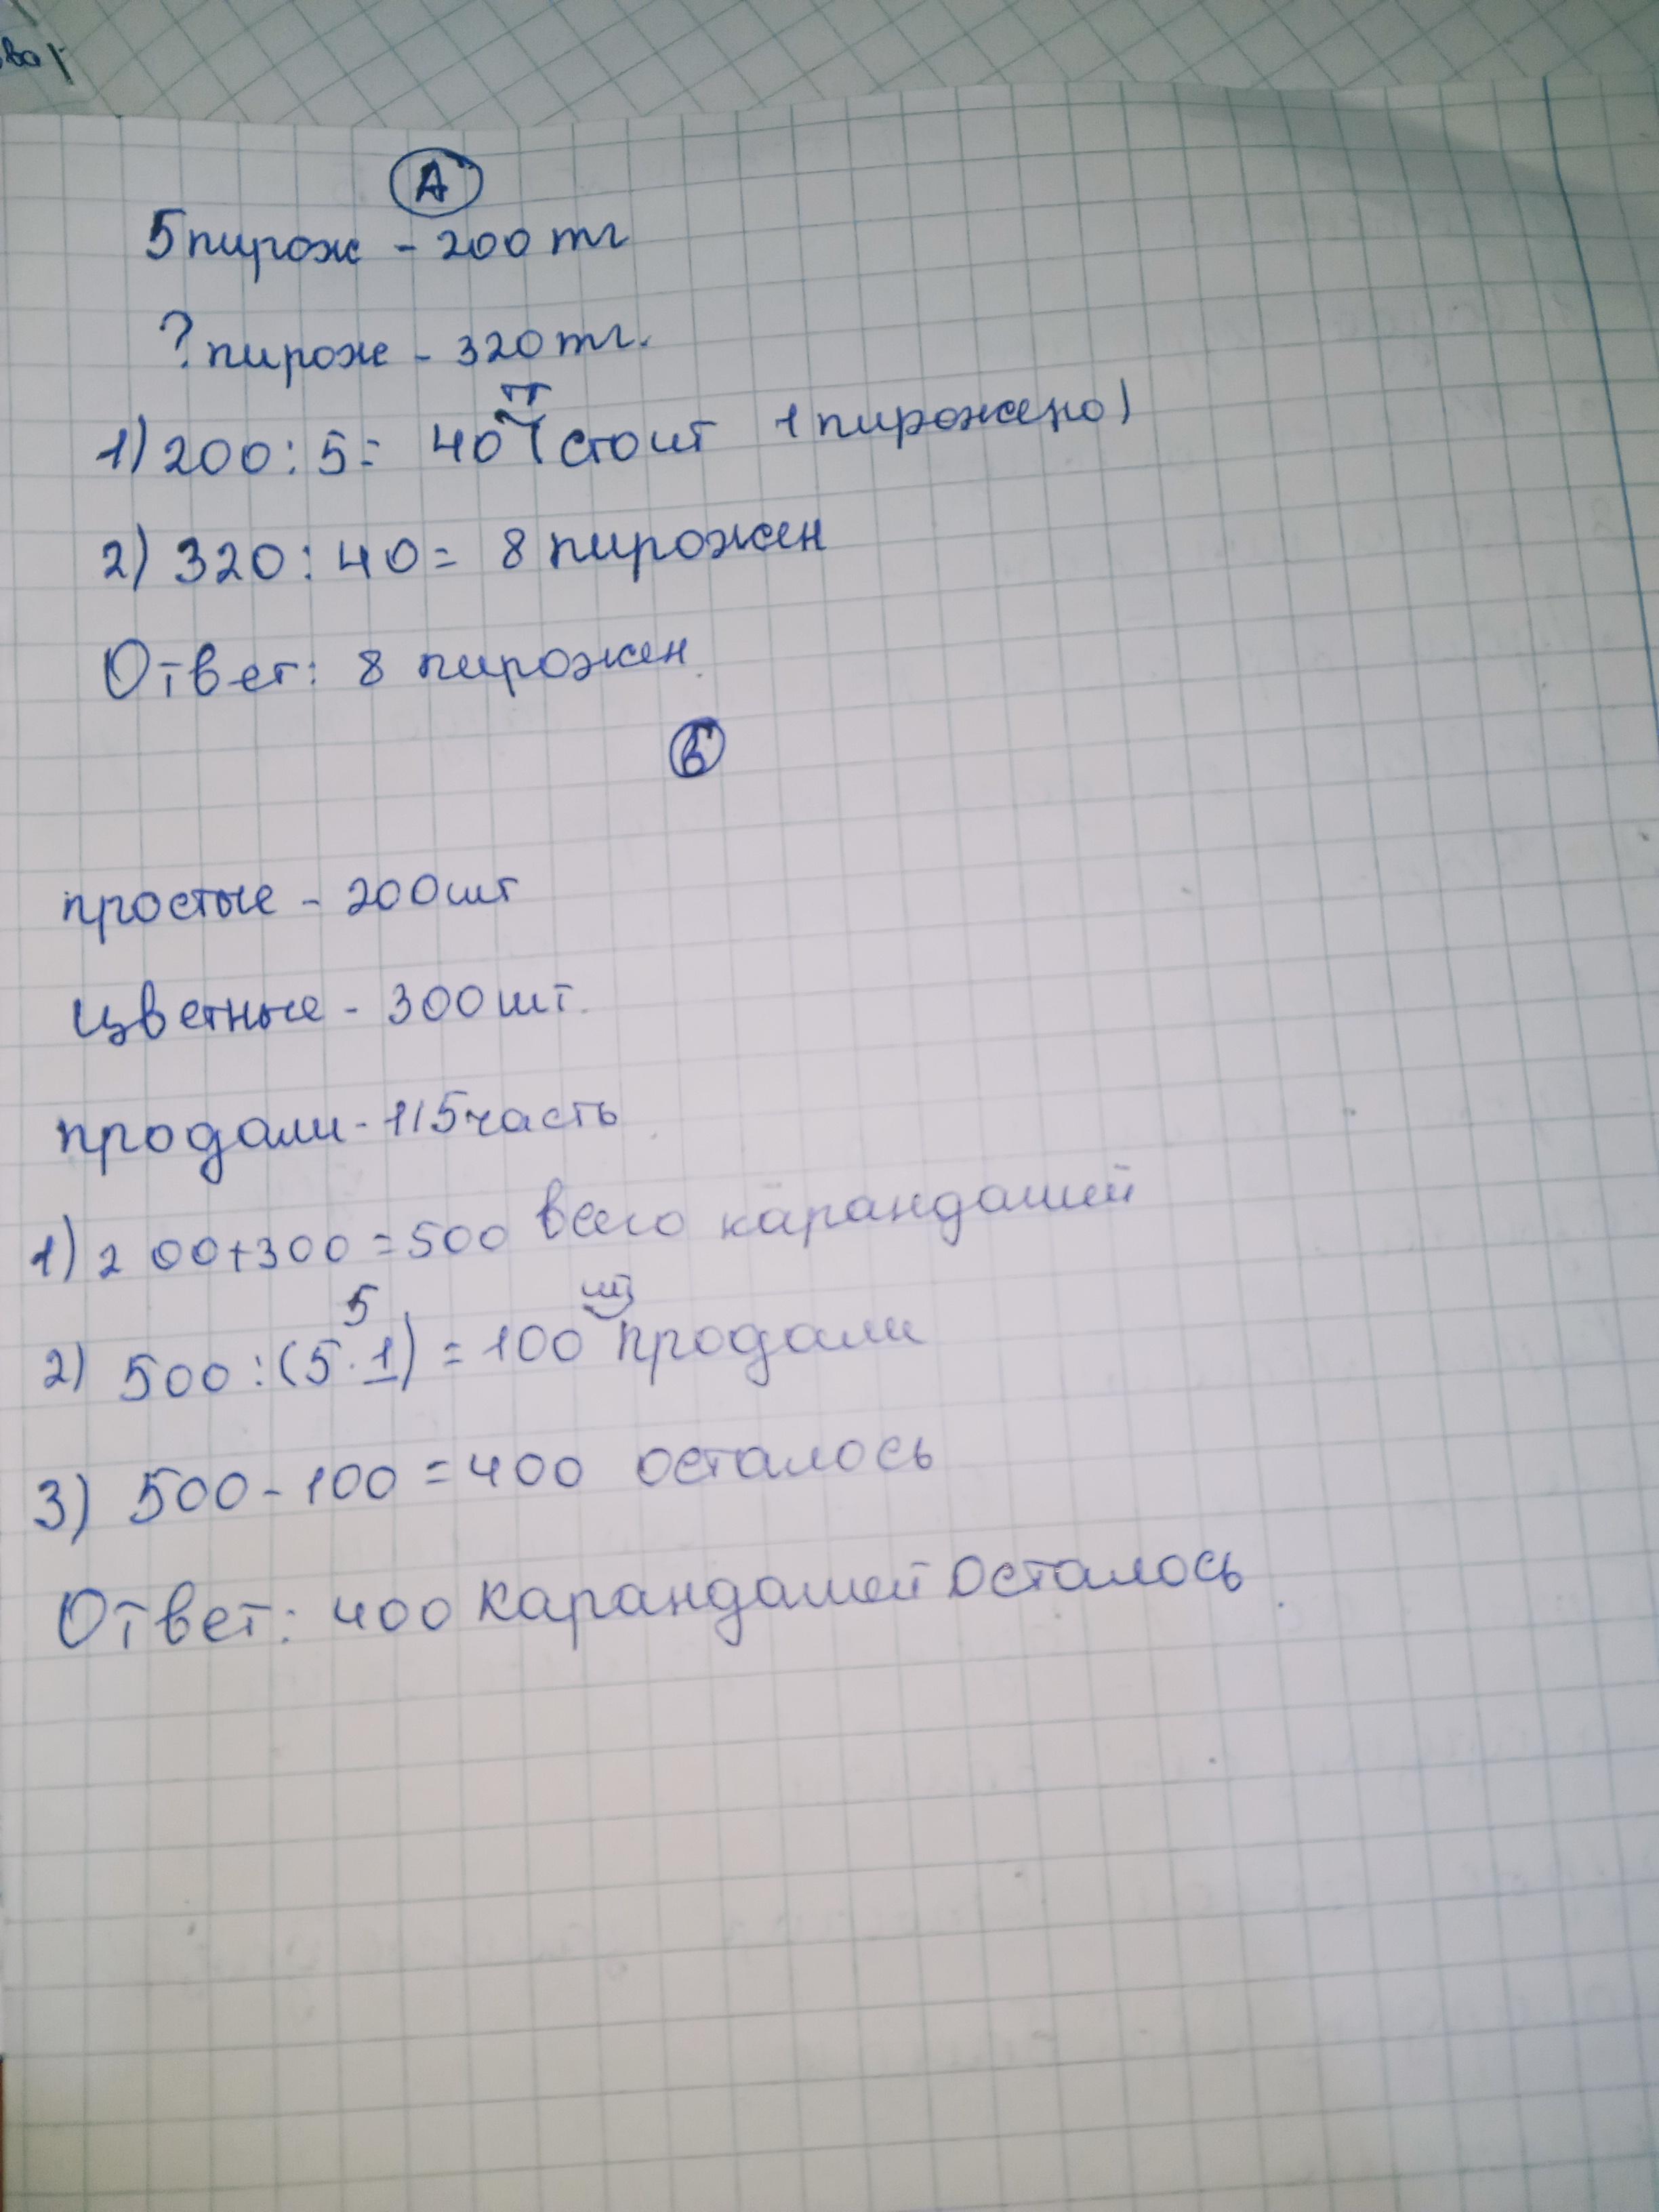 А
5 пирож - 200 тг
? пирож - 320 тг.
тг
1) 200 : 5 = 40 (стоит 1 пирожено)
2) 320 : 40 = 8 пирожен
Ответ: 8 пирожен.
Б
простые - 200 шт
цветные - 300 шт.
продали - 1/5 часть
1) 200+300 = 500 всего карандашей
5 шт
2) 500 : (5 · 1) = 100 продали
3) 500 - 100 = 400 осталось
Ответ: 400 карандашей осталось.